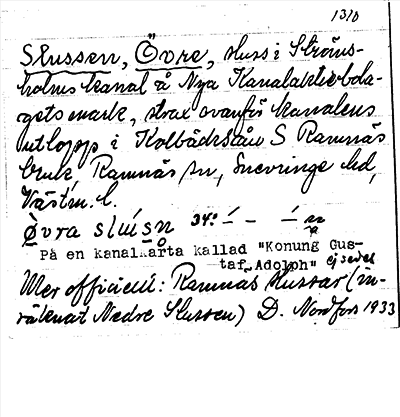 1310
Slussen, Övre, sluss i Ströms-
holms kanal å Nya Kanalaktiebola-
gets mark, strax ovanför kanalens
utlopp i Kolbäcksån S Ramnäs
bruk, Ramnäs sn, Snevringe hd,
Västm. l.
Övra slusn 34:
På en kanalkarta kallad "Konung Gus-
taf Adolph" ej sedel
Mer officiell: Ramnäs slussar (in-
räknat Nedre Slussen) D. Nordfors 1933